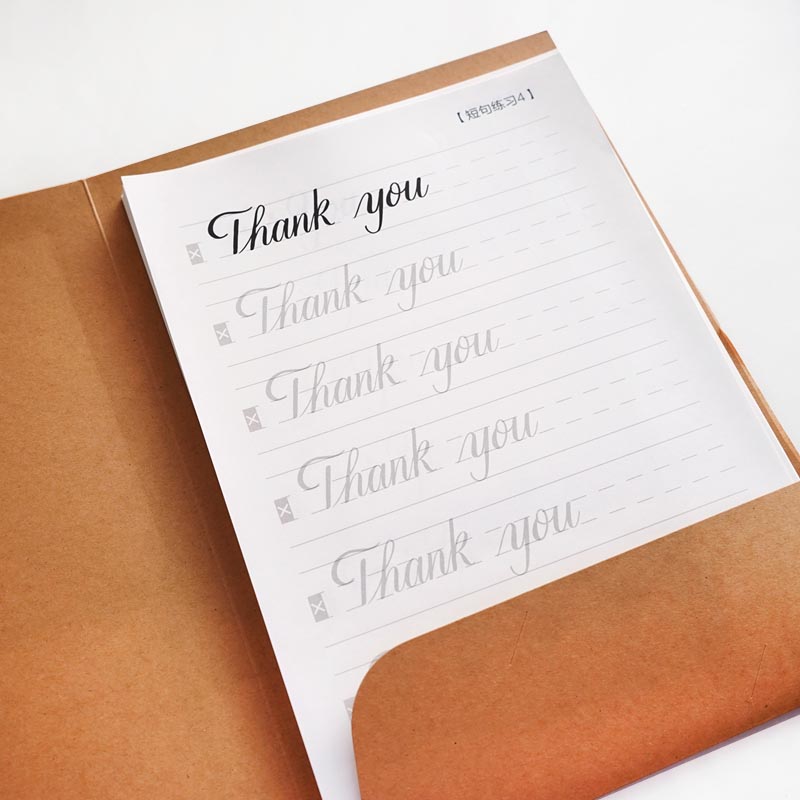 【短句练习4】
Thank you
Thank you
Thank you
Thank you
Thank you